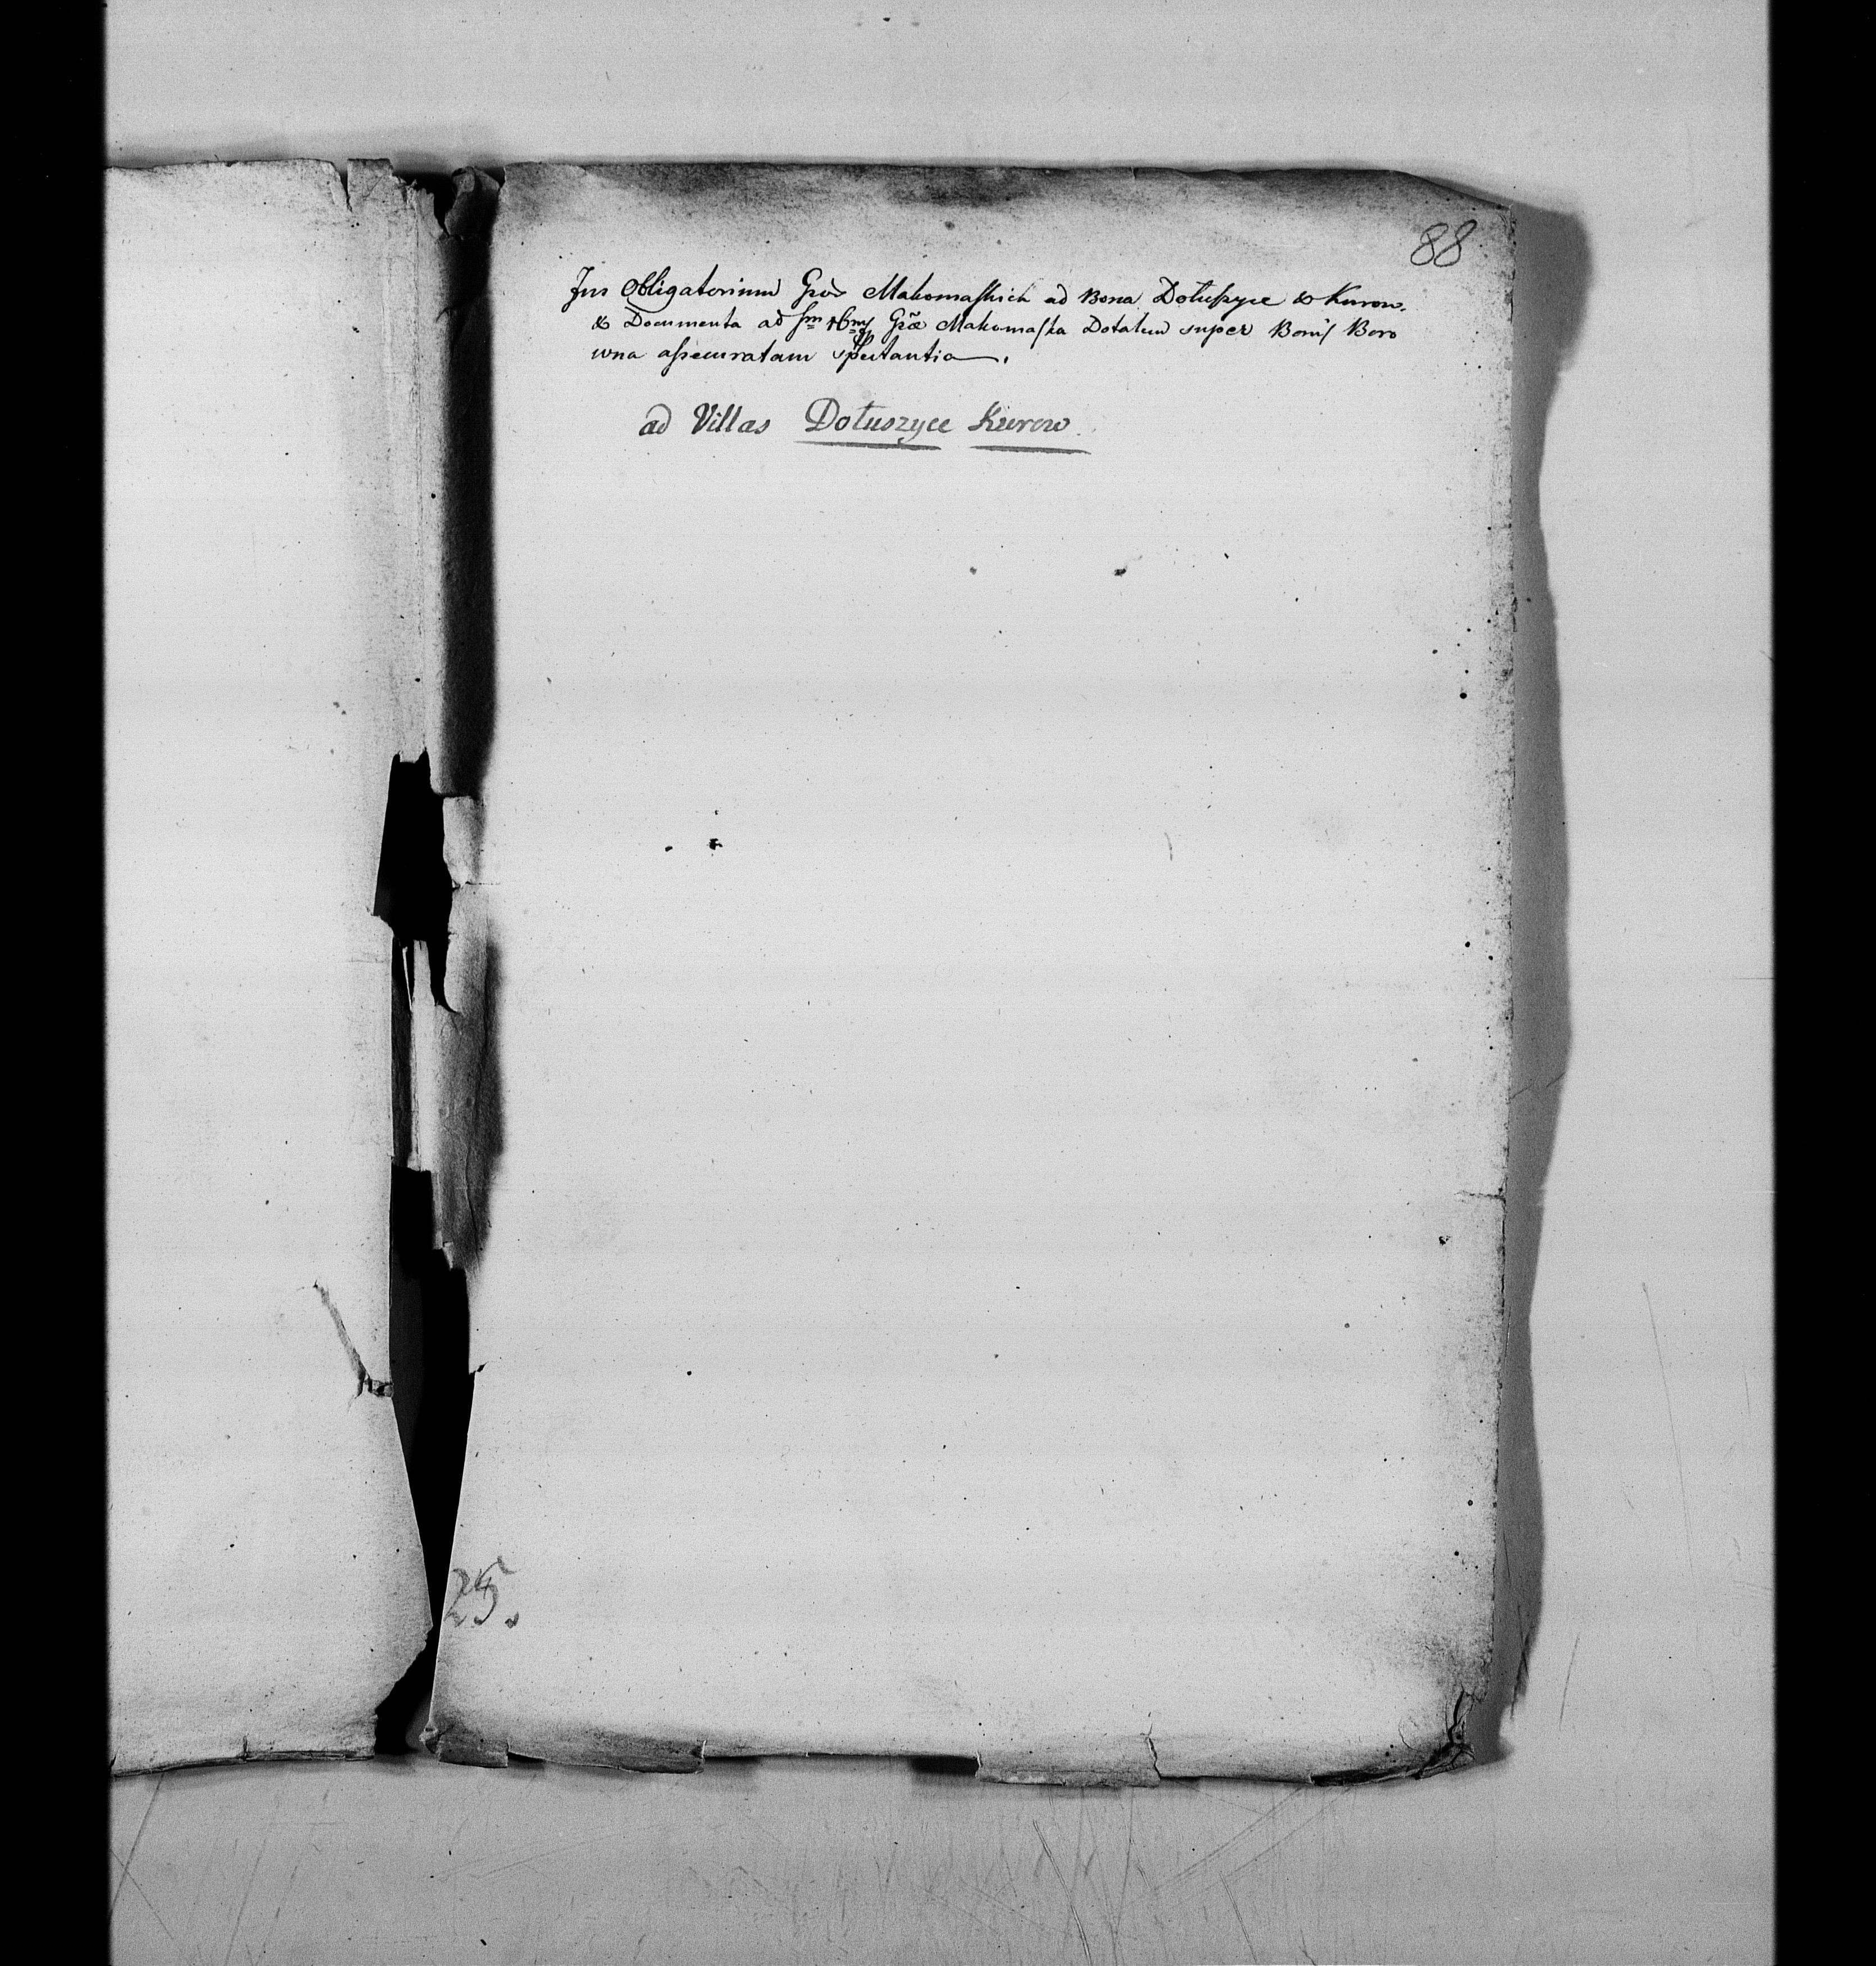 88
Jus Obligatorium Gros Makomaſkich ad Bona Dołuſzyce & Kurow.
& Documenta ad Sm Gſæ Makomaſka Dotalem super Boniſ Boro
wna aſsecuratam spectantia.
ad Villas Dołuszyce Kurow
25.